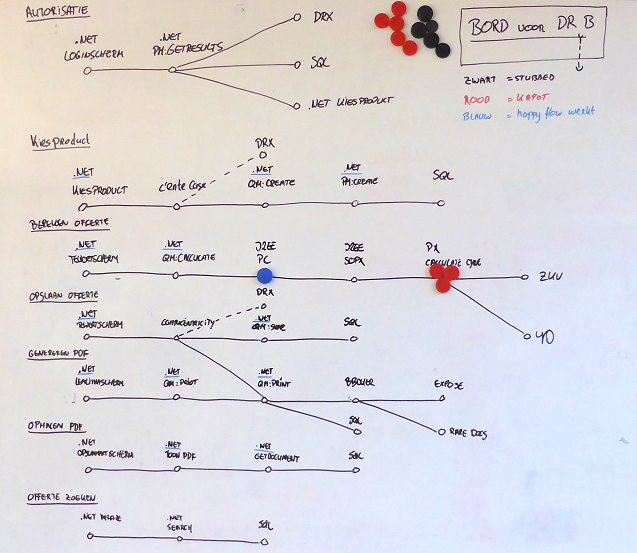 AUTORISATIE
DRX
.NET
LOGINSCHERM
.NET
PM:GETRESULTS
SQL
.NET KIESPRODUCT
BORD VOOR DR B
ZWART = STUBBED
ROOD = KAPOT
BLAUW = happy flow werkt
Kiesproduct
DRX
.NET
KIESPRODUCT
Create Case
.NET
QM:CREATE
.NET
PM:CREATE
SQL
BEREKEN OFFERTE
.NET
.NET
QM:CALCULATE
J2EE
PC
J2EE
SOPX
PX
ZKV
OPSLAAN OFFERTE
DRX
.NET
.NET
SQL
GENEREREN PDF
.NET
.NET
QM:PRINT
.NET
QM:PRINT
BROKER
EXPOSE
SQL
RARE DOCS
OPHALEN PDF
.NET
.NET
TOON PDF
.NET
GETDOCUMENT
SQL
OFFERTE ZOEKEN
.NET
.NET
SEARCH
SQL